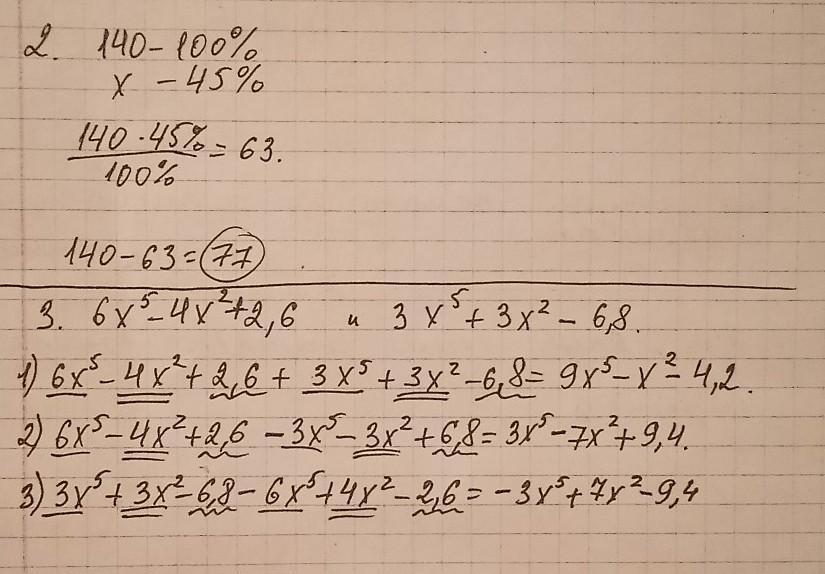 2. 140 - 100%
x - 45%
140 · 45% / 100% = 63.
140 - 63 = 77
3. 6x⁵ - 4x² + 2,6 и 3x⁵ + 3x² - 6,8.
1) 6x⁵ - 4x² + 2,6 + 3x⁵ + 3x² - 6,8 = 9x⁵ - x² - 4,2.
2) 6x⁵ - 4x² + 2,6 - 3x⁵ - 3x² + 6,8 = 3x⁵ - 7x² + 9,4.
3) 3x⁵ + 3x² - 6,8 - 6x⁵ + 4x² - 2,6 = -3x⁵ + 7x² - 9,4